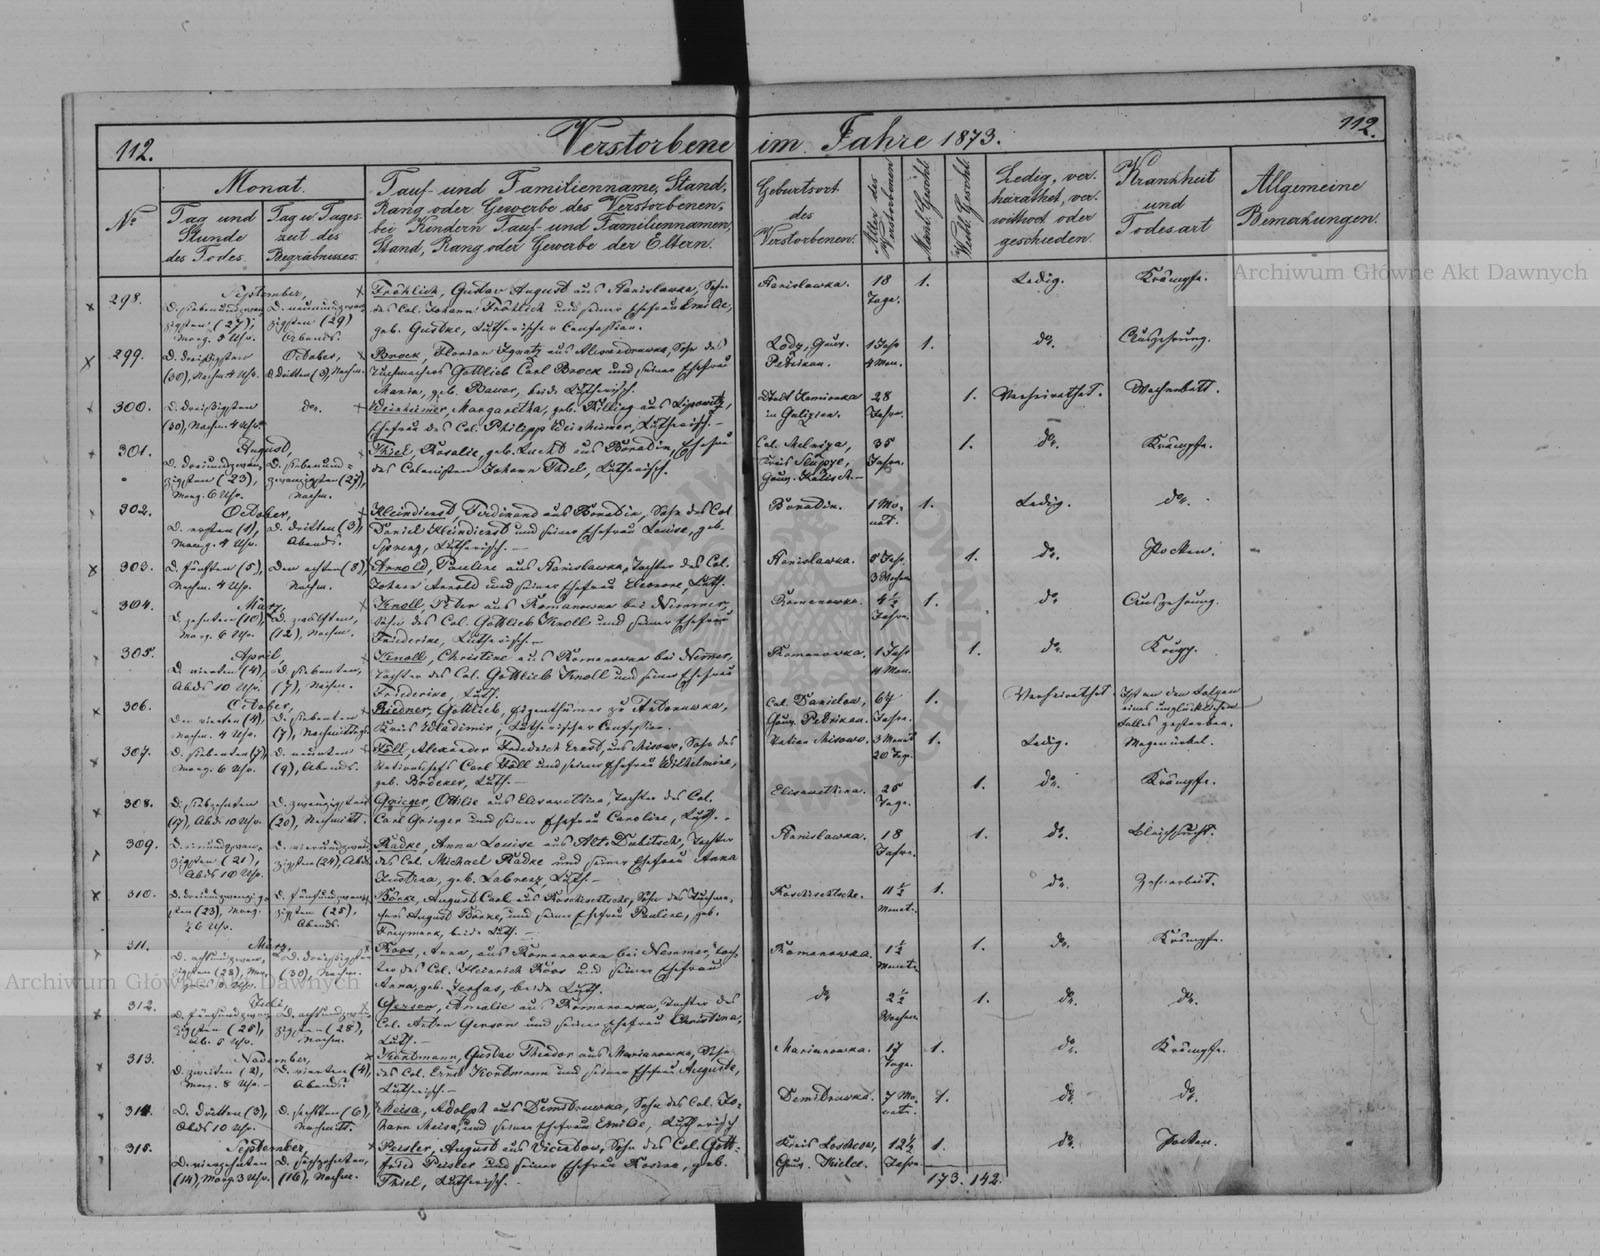 112.
Verstorbene im Jahre 1873.
112.
No
Monat.
Tag und Stunde des Todes.
Tag u. Tageszeit des Begräbnisses.
Tauf- und Familienname, Stand,
Rang oder Gewerbe des Verstorbenen,
bei Kindern Tauf- und Familiennamen,
Stand, Rang oder Gewerbe der Eltern.
Geburtsort
des
Verstorbenen.
Alter des Verstorbenen
Männl. Geschl.
Weibl. Geschl.
Ledig, ver-
heirathet, ver-
wittwet oder
geschieden.
Krankheit
und
Todesart
Allgemeine
Bemerkungen.
Archiwum Główne Akt Dawnych
298.
September,
D. siebenundzwan-
zigsten (27),
Morg. 5 Uhr.
D. neunundzwan-
zigsten (29)
Abends.
Fröhlich, Gustav August aus Stanislawka, Sohn
des Col. Johann Fröhlich und seiner Ehefrau Emilie,
geb. Lutherischer Confession.
Stanislawka.
18
Tage.
1.
Ledig.
Krämpfe.
299.
D. dreißigsten
(30), Nachm. 4 Uhr.
October,
d. dritten (3), Nachm.
Brock, Florian Ignatz aus Alexandrowka, Sohn des
Tuchmachers Gottlieb Carl Brock und seiner Ehefrau
Maria, geb. Bauer, beide Lutherisch.
Lodz, Gouv.
Petrikau.
1 Jahr
4 Mon.
1.
do.
Auszehrung.
300.
D. dreißigsten
(30), Nachm. 4 Uhr.
do.
Weinheimer, Margaretha, geb. Killing aus Lipowitz,
Ehefrau des Col. Philipp Weinheimer, Lutherisch. –
Stadt Kamionka
in Galizien.
28
Jahre.
1.
Verheirathet.
Wochenbett.
301.
August,
D. dreiundzwan-
zigsten (23),
Morg. 6 Uhr.
D. siebenund-
zwanzigsten (27),
Nachm.
Thiel, Rosalie, geb. Lucht aus Boratin, Ehefrau
des Colonisten Johann Thiel, Lutherisch.
Kreis
Gouv. Kalisch.–
35
Jahre.
1.
do.
Krämpfe.
302.
October,
D. ersten (1),
Morg. 4 Uhr.
d. dritten (3),
Abends.
Kleindienst, Ferdinand aus Boratin, Sohn des Col.
Daniel Kleindienst und seiner Ehefrau Louise, geb.
Lutherisch. –
Boratin.
1 Mo-
nat.
1.
Ledig.
do.
303.
D. fünften (5),
Nachm. 4 Uhr.
Den achten (8),
Nachm.
Arnold, Pauline aus Stanislawka, Tochter des Col.
Johann Arnold und seiner Ehefrau Eleonore, Luth.
Stanislawka.
5 Jahr
3 Wochen
1.
do.
Pocken.
304.
März,
D. zehnten (10),
Morg. 6 Uhr.
D. zwölften,
(12), Nachm.
Knoll, Peter aus Romanowka bei Nemmer,
Sohn des Col. Gottlieb Knoll und seiner Ehefrau
Friederike, Lutherisch. –
Romanowka.
4 ½
Jahre.
1.
do.
Auszehrung.
305.
April,
D. vierten (4),
Abds 10 Uhr.
D. siebenten,
(7), Nachm.
Knoll, Christine aus Romanowka bei Nemer,
Tochter des Col. Gottlieb Knoll und seiner Ehefrau
Friederike, Luth.
Romanowka.
1 Jahr
11 Mon.
1.
do.
Krupp.
306.
October,
Den vierten (4),
Nachm. 4 Uhr.
D. siebenten
(7), Nachmittags.
Riedner, Gottlieb, Eigenthümer zu Antonuwka,
Kreis Wladimir, Lutherischer Confession.
Col. Danielow,
Gouv. Petrikau.
67
Jahre.
1.
Verheirathet.
Ist an den Folgen
eines unglücklichen
Falles gestorben.
307.
D. siebenten (7),
Morg. 6 Uhr.
D. neunten
(9), Abends.
Föll, Alexander Friedrich Ernst, aus Misowo, Sohn des
Stationschefs Carl Föll und seiner Ehefrau Wilhelmine,
geb. Brücker, Luth. –
Station Misowo.
3 Monat
20 Tage.
1.
Ledig.
308.
D. siebzehnten
(17), Abds 10 Uhr.
D. zwanzigsten
(20), Nachmitt.
Grieger, Ottilie aus Elisawettina, Tochter des Col.
Carl Grieger und seiner Ehefrau Caroline, Luth. –
Elisawettina.
25
Tage.
1.
do.
Krämpfe.
309.
D. einundzwan-
zigsten (21),
Abds 10 Uhr.
D. vierundzwan-
zigsten (24), Abds
Radke, Anna Louise aus Alt-Dubitsch, Tochter
des Col. Michael Radke und seiner Ehefrau Anna
Justina, geb. Labrenz, Luth. –
Stanislawka.
18
Jahre.
1.
do.
Bleichsucht.
310.
D. dreiundzwanzig-
sten (23), Morg.
½6 Uhr.
D. fünfundzwan-
zigsten (25),
Abends.
Börke, August Carl aus Roschischtsche, Sohn des Tuchma-
chers August Börke, und seiner Ehefrau Pauline, geb.
Freymark, beide Luth. –
Roschischtsche.
11 ½
Monat.
1.
do.
Zahnarbeit.
311.
März,
D. achtundzwan-
zigsten (28), Mor-
gens 8 Uhr.
D. dreißigsten
(30), Nachm.
Roos, Anna, aus Romanowka bei Nemmer, Toch-
ter des Col. Heinrich Roos und seiner Ehefrau
Anna, geb. Zerfas, beide Luth.
Romanowka.
1 ½
Monate.
1.
do.
Krämpfe.
Archiwum Główne Akt Dawnych
312.
Juli,
D. fünfundzwan-
zigsten (25),
Ab. 5 Uhr.
D. achtundzwan-
zigsten (28),
Nachm.
Gerson, Amalie aus Romanowka, Tochter des
Col. Anton Gerson und seiner Ehefrau Christina,
Luth. –
do
2 ½
Wochen.
1.
do.
do.
313.
November,
D. zweiten (2),
Morg. 8 Uhr.–
D. vierten (4),
Abends.
Kortmann, Gustav Theodor aus Marianowka, Sohn
des Col. Ernst Kortmann und seiner Ehefrau Auguste,
Lutherisch.–
Marianowka.
17
Tage.
1.
do.
Krämpfe.
314.
D. dritten (3),
Abds 10 Uhr.
D. sechsten (6),
Nachmitt.
Meisa, Adolph aus Dembrowka, Sohn des Col. Jo-
hann Meisa, und seiner Ehefrau Emilie, Lutherisch
Dembrowka.
7 Mo-
nate.
1.
do.
do.
315.
September,
D. vierzehnten
(14), Morg. 3 Uhr.
D. sechzehnten,
(16), Nachm.
Peisler, August aus Vicentow, Sohn des Col. Gott-
fried Peisler und seiner Ehefrau Rosine, geb.
Thiel, Lutherisch. –
Kreis
Gouv. Kielce.
12½
Jahre.
1.
do.
Pocken.
173. 142.